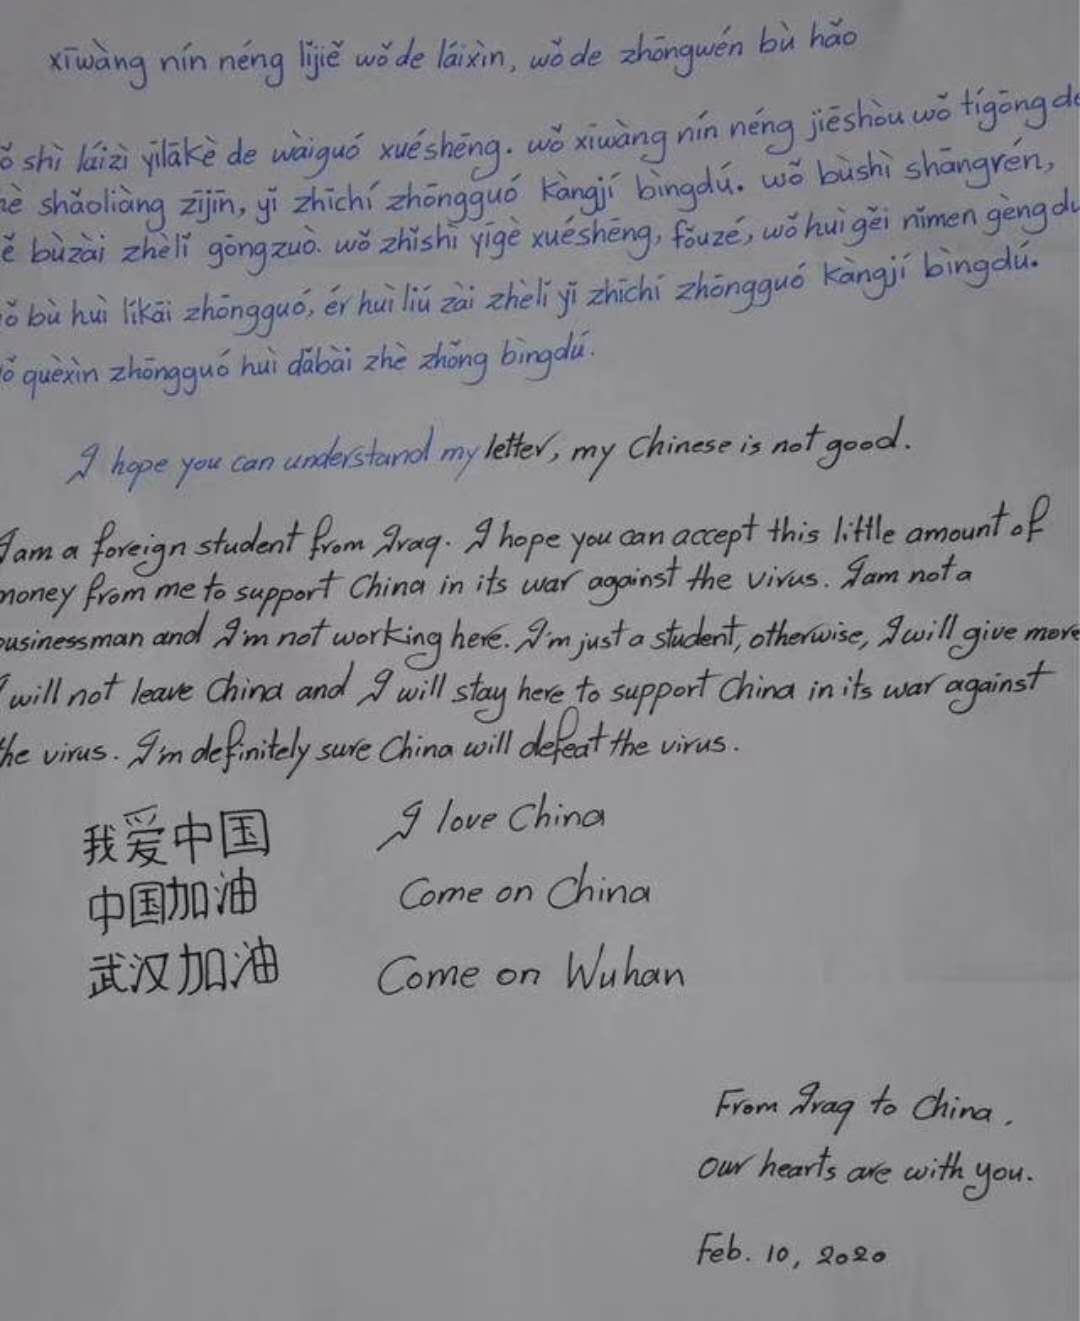 xīwàng nín néng lǐjiě wǒ de láixìn, wǒ de zhōngwén bù hǎo
ǒ shì láizì yīlākè de wàiguó xuéshēng. wǒ xīwàng nín néng jiēshòu wǒ tígōng de
hè shǎoliàng zījīn, yǐ zhīchí zhōngguó kàngjí bìngdú. wǒ bùshì shāngrén,
ě bùzài zhèlǐ gōngzuò. wǒ zhǐshì yīgè xuéshēng, fǒuzé, wǒ huì gěi nǐmen gèng du
ǒ bù huì líkāi zhōngguó, ér huì liú zài zhèlǐ yǐ zhīchí zhōngguó kàngjí bìngdú.
ǒ quèxìn zhōngguó huì dǎbài zhè zhǒng bìngdú.
I hope you can understand my letter, my Chinese is not good.
I am a foreign student from Iraq. I hope you can accept this little amount of
money from me to support China in its war against the virus. I am not a
businessman and I'm not working here. I'm just a student, otherwise, I will give more
I will not leave China and I will stay here to support China in its war against
the virus. I'm definitely sure China will defeat the virus.
我爱中国 I love China
中国加油 Come on China
武汉加油 Come on Wuhan
From Iraq to China.
Our hearts are with you.
Feb. 10, 2020